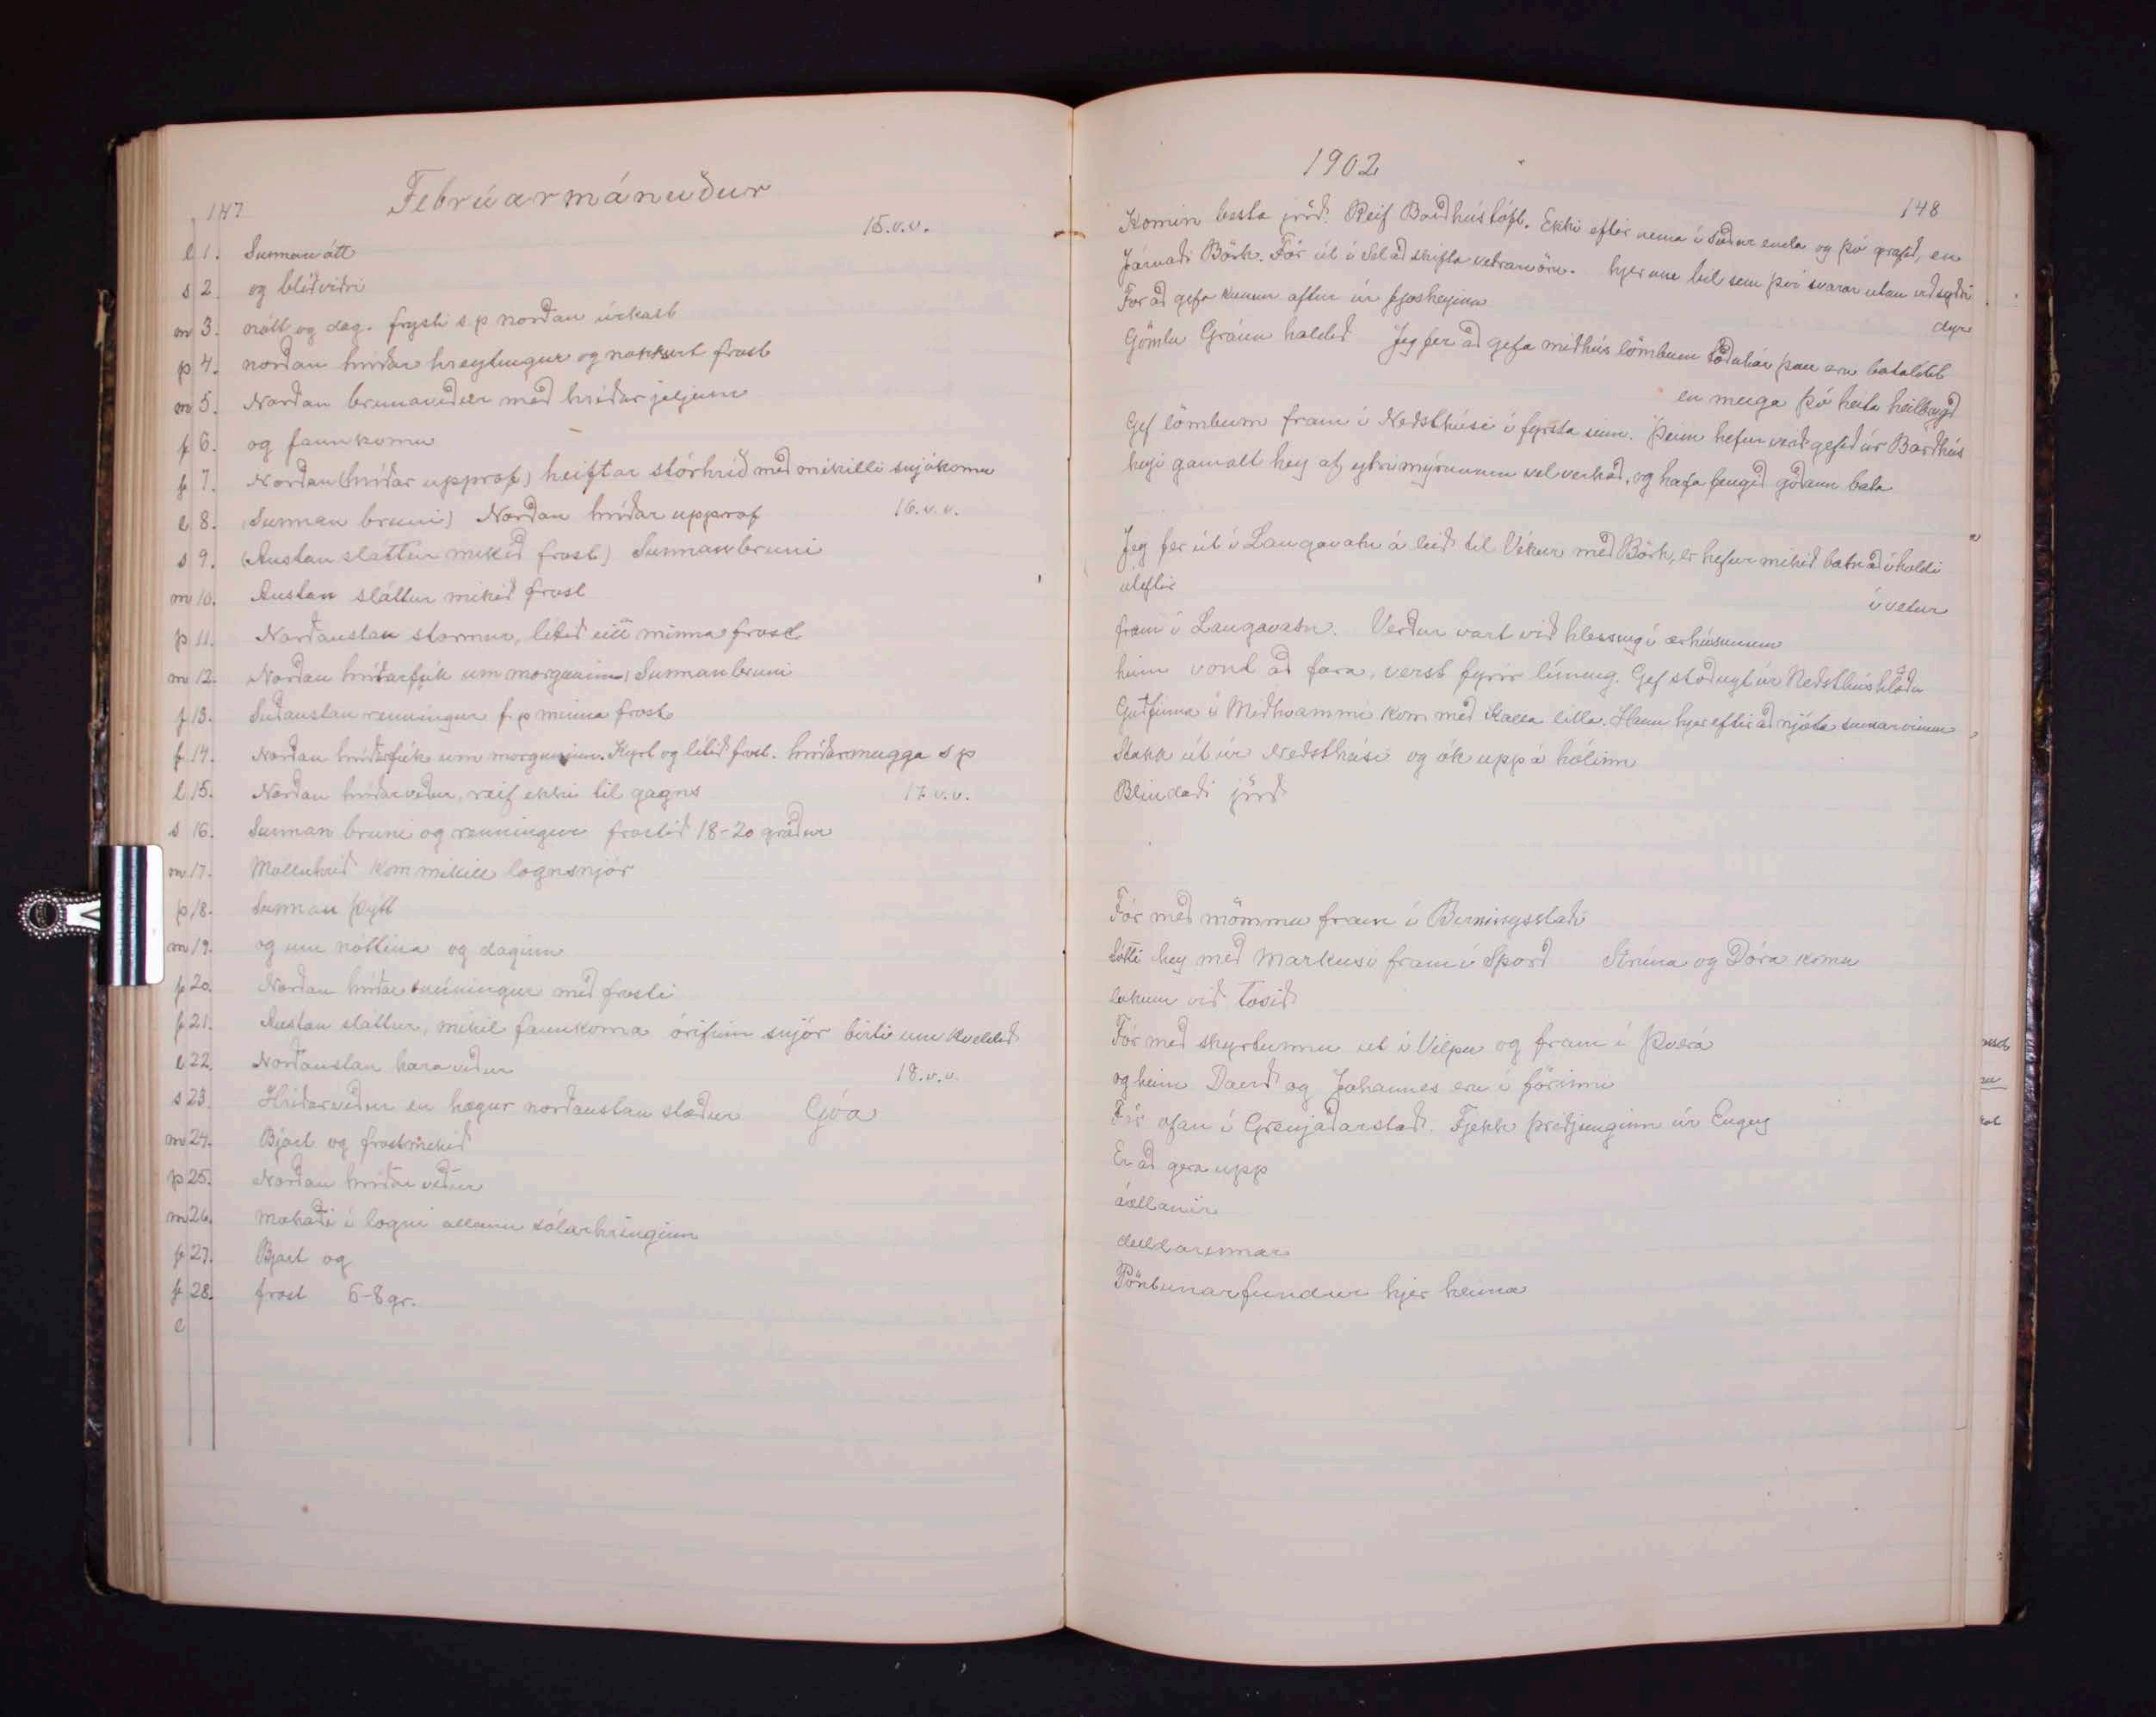 147
Febrúarmánuður
15.v.v.
l 1. Sunnan átt
s 2. og blíðviðri
m 3. nótt og dag. frysti s.p norðan úrkast
þ 4. norðan hríðar hreytingur og nokkurt frost
m 5. Norðan brunaveður með hríðarjeljum
f 6. og fannkomu
f 7. Norðan (hríðar upprof) heiftar stórhríð með mikilli snjókomu
l 8. (Sunnan bruni) Norðan hríðar upprof 16.v.v.
s 9. (Austan sláttur mikið frost) Sunnanbruni
m 10. Austan sláttur mikið frost
þ 11. Norðaustan stormur, lítið eitt minna frost
m 12. Norðan hríðarfjúk um morguninn, Sunnanbruni
f 13. Suðaustan renningur f.p minna frost
f 14. Norðan hríðarfjúk um morguninn. Kyrt og lítið frost. hríðarmugga s p
l 15. Norðan hríðarveður, reif ekki til gagns 17.v.v.
s 16. Sunnan bruni og renningur frostið 18-20 gráður
m 17. Molluhríð kom mikill lognsnjór
þ 18. Sunnan þýtt
m 19. og um nóttina og daginn
f 20. Norðan hríðar renningur með frosti
f 21. Austan sláttur, mikil fannkoma órifinn snjór birti um kveldið
l 22. Norðaustan kara veður 18.v.v.
s 23. Hríðarveður en hægur norðaustan stæður Góa
m 24. Bjart og frostmikið
þ 25. Norðan hríðar veður
m 26. mokaði í logni allann sólarhringinn
f 27. Bjart og
f 28. frost 6-8 gr.
l
1902
148
Komin besta jörð. Reif Barðhústópt. Ekki eftir nema í suður enda og þó grafið, en
Járnaði Börk. Fór út í Sel að skifta vetrarvöru. hjer um bil sem því svarar utan við syðri
dyr
Fór að gefa kúnum aftur úr fjósheyinu
Gömlu Gránu haldið Jeg fer að gefa miðhús lömbum töðuhár þau eru batalítil
en meiga þó heita heilbrygð
Gef lömbum fram í Neðsthúsi í fyrsta sinn. Þeim hefur verið gefið úr Barðhús
heyi gamalt hey af ytrimýrunum vel verkað, og hafa fengið góðann bata
Jeg fer út í Laugavatn á leið til Víkur með Börk, er hefur mikið batnað í haldi
í vetur
úteftir
fram í Laugavatn. Verður vart við hlessing í ærhúsunum
heim vond að fara, verst fyrir líning. Gef stöðugt úr Neðsthúshlöðu
Guðfinna í Miðhvammi kom með Kalla litla. Hann hjer eftir að njóta sumarvinnu
Stakk út úr Neðsthúsi og ók upp á hólinn
Blindaði jörð
Fór með mömmu fram í Birningsstaði
Sótti hey með Markúsi fram í Sporð Strúna og Dóra komu
lukum við tosið
Fór með skyrtunnu út í Vilpu og fram í Þverá
og heim Davið og Jóhannes eru í förinni
Fór ofan í Grenjaðarstað. Fjekk þriðjunginn úr Engey
Er að gera upp
áætlanir
deildarinnar
Pöntunarfundur hjer heima